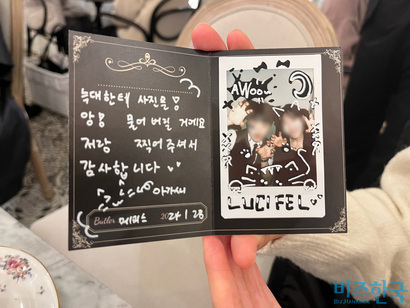 늑대한테 사진을
앙! 물어 버릴 거예요
저랑 찍어 주셔서
감사합니다
아가씨
Butler 메피스 2024 1 28
AWoo~
LUCIFEL
비즈한국
BUSINESSKOREA